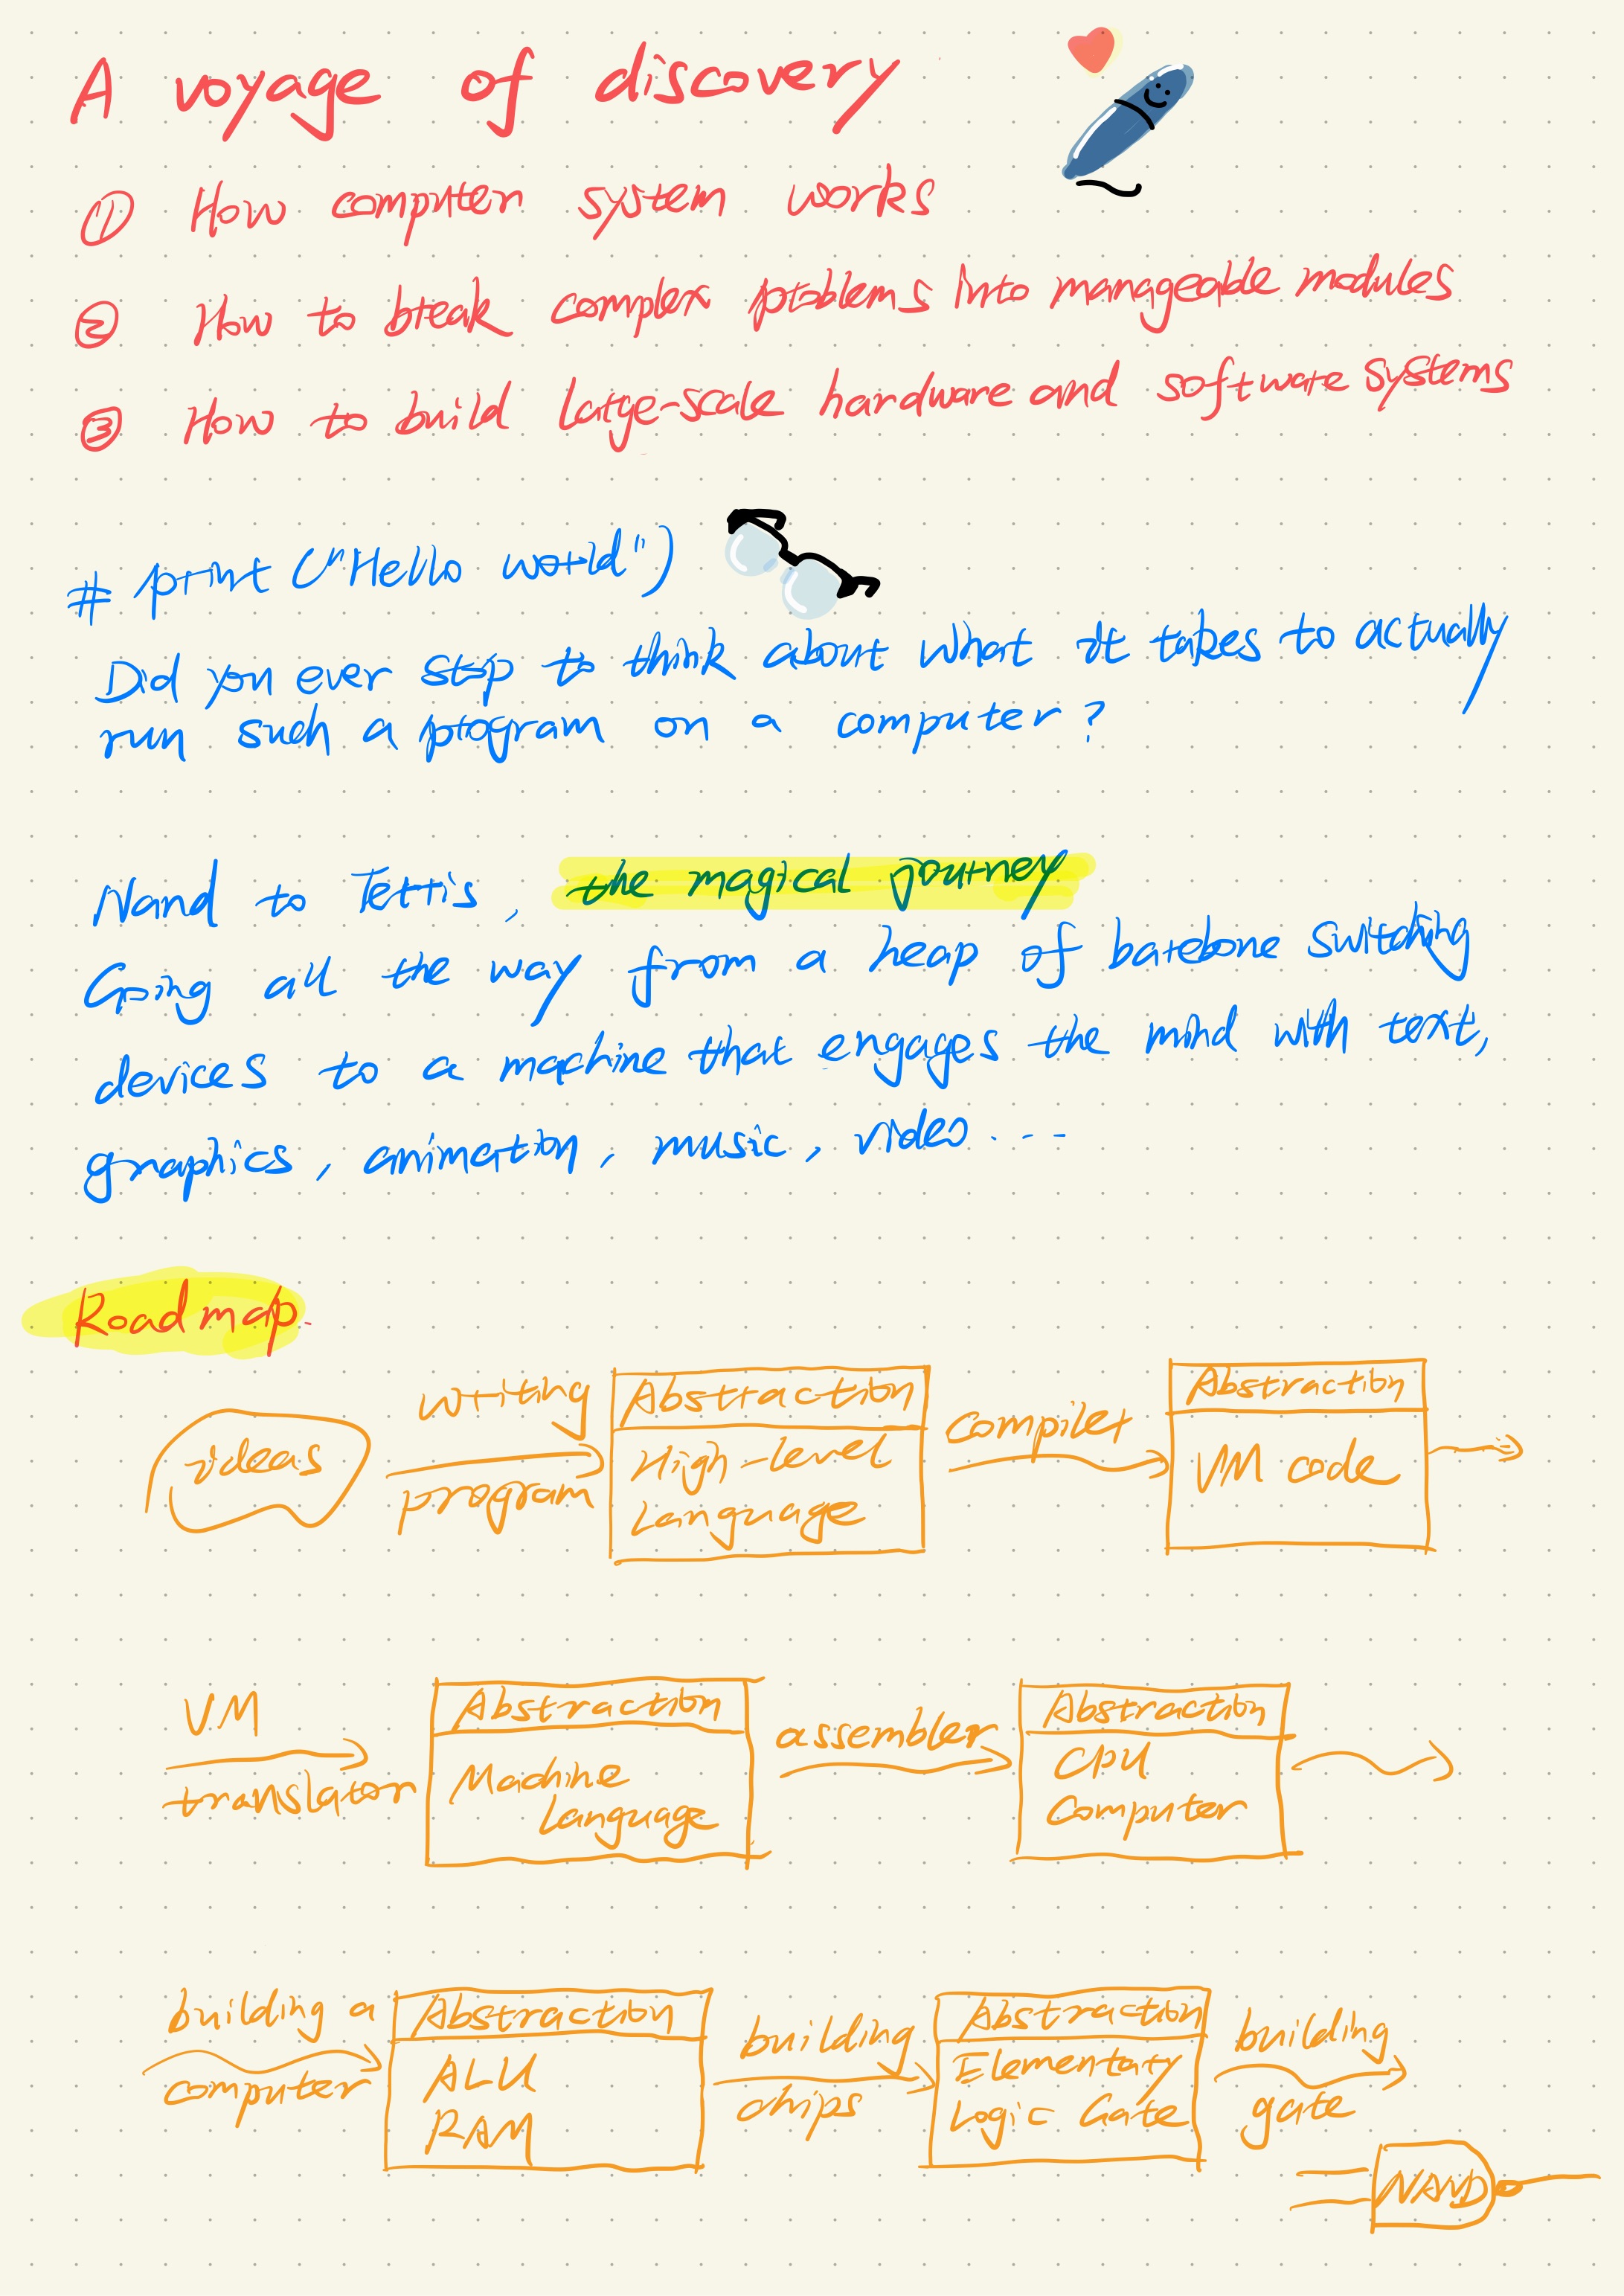 A voyage of discovery
① How computer system works
② How to break complex problems into manageable modules
③ How to build large-scale hardware and software systems
# print ("Hello world")
Did you ever stop to think about what it takes to actually
run such a program on a computer?
Nand to Tetris, the magical journey
Going all the way from a heap of barebone switching
devices to a machine that engages the mind with text,
graphics, animation, music, video ...
Roadmap.
ideas
writing
program
Abstraction
High-level
Language
compiler
Abstraction
VM code
VM
translator
Abstraction
Machine
Language
assembler
Abstraction
CPU
Computer
building a
computer
Abstraction
ALU
RAM
building
chips
Abstraction
Elementary
Logic Gate
building
gate
NAND